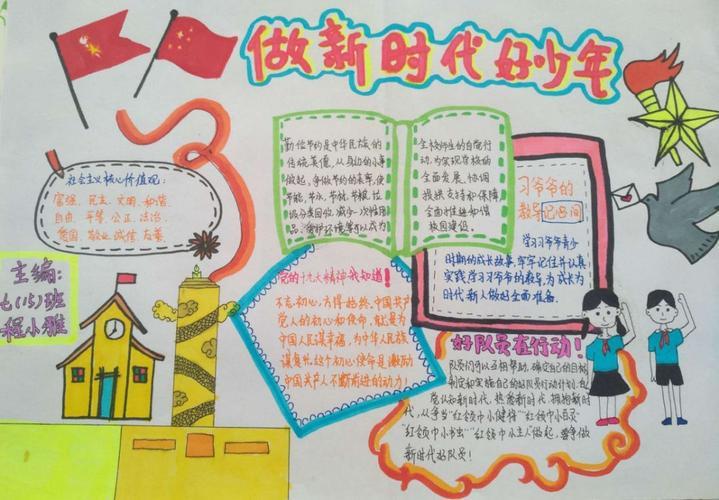 做新时代好少年
社会主义核心价值观:
富强、民主、文明、和谐
自由、平等、公正、法治、
爱国、敬业、诚信、友善
勤俭节约是中华民族的
传统美德,从身边的小事
做起,争做节约的表率,使
节能、节水、节材、节粮、垃
圾分类回收,减少一次性用
品、
全校师生的自觉行
动,为实现学校的
全面发展、协调
提供支持和保障,
全面推进和谐
校园建设。
习爷爷的
教导记心间
学习习爷爷青少
时期的成长故事,牢牢记住并认真
实践学习习爷爷的教导,为成长为
时代新人做好全面准备。
主编:
七(15)班
程小雅
党的十九大精神我知道!
不忘初心,方得始终,中国共产
党人的初心和使命,就是为
中国人民谋幸福,为中华人民族
谋复兴,这个初心使命是激励
中国共产人不断前进的动力!
好队员在行动!
队员们可以互相帮助,确定自己的目标
制定和实施自己的好队员行动计划,在
意认知新时代,热爱新时代,拥抱新时
代,从争当“红领巾小健将”“红领巾小百灵”
“红领巾小书虫”“红领巾小主人”做起,争做
新时代好队员!